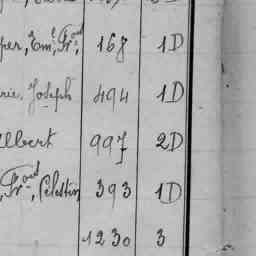 per, Em.é Fr.oid 168 1D
rie, Joseph 494 1D
lbert 997 2D
Fr.oid, Célestin 393 1D
1230 3